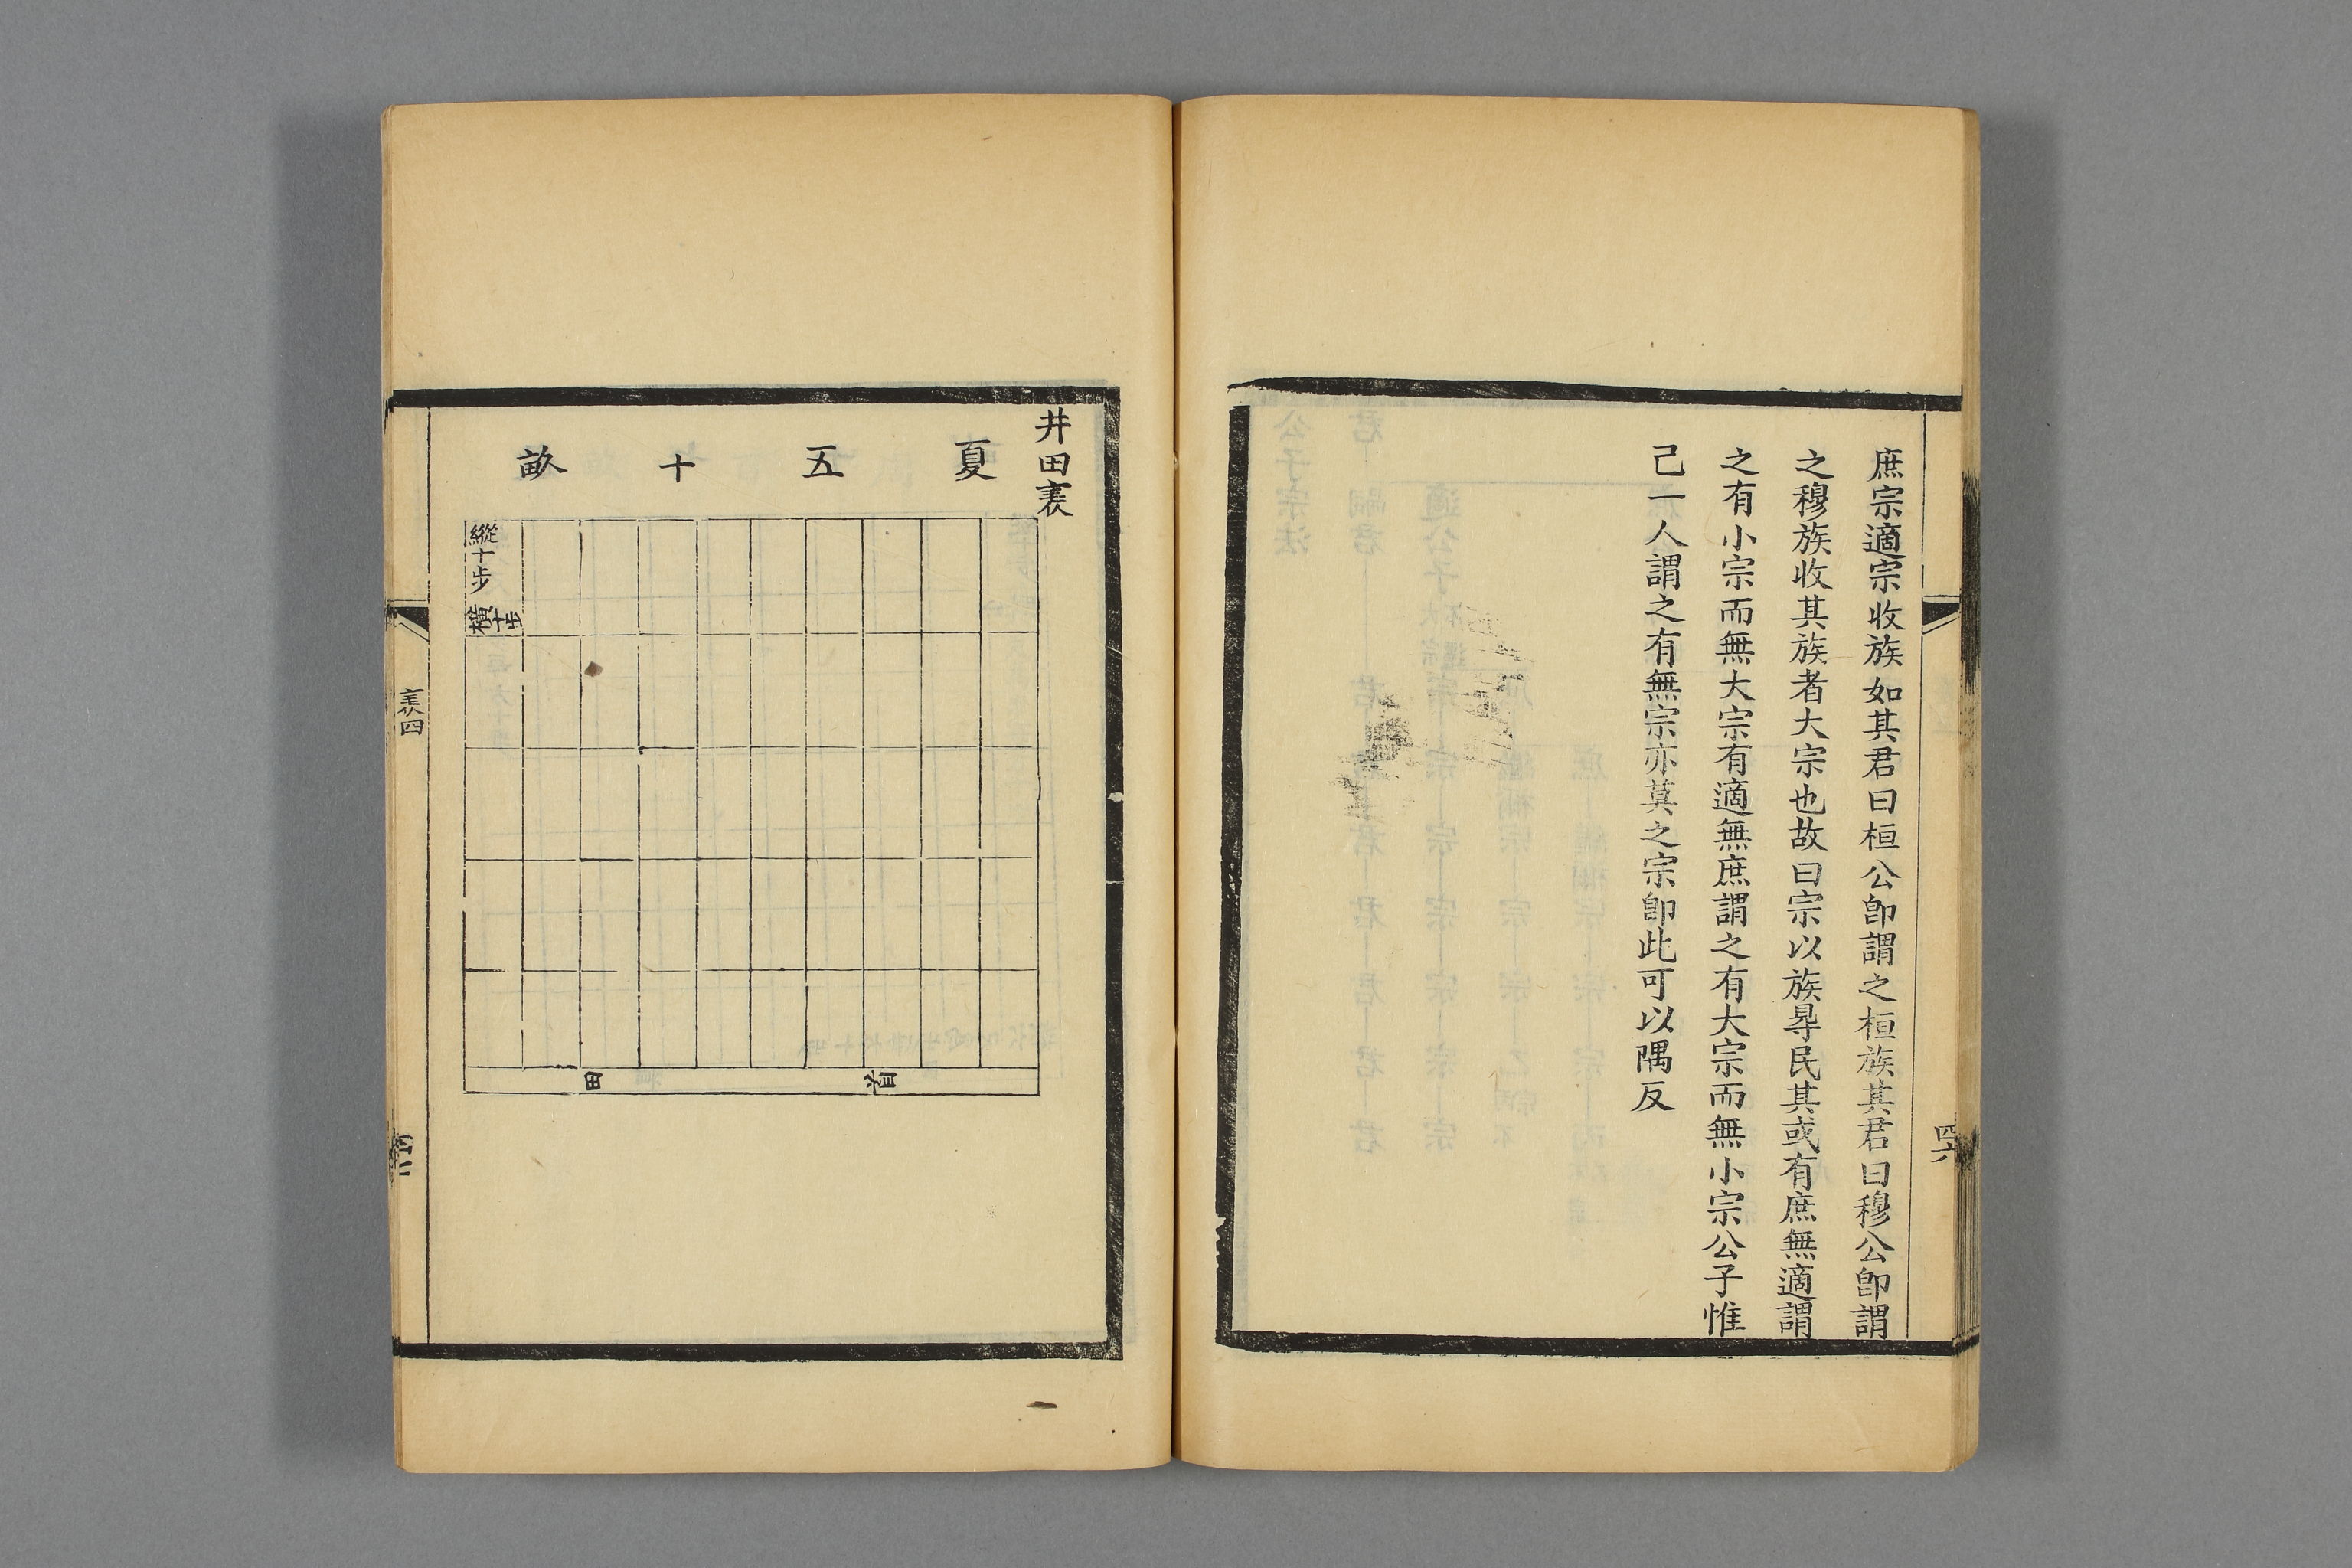 庶宗適宗收族如其君曰桓公卽謂之桓族其君曰穆公卽謂
之穆族收其族者大宗也故曰宗以族㝵民其或有庶無適謂
之有小宗而無大宗有適無庶謂之有大宗而無小宗公子惟
己一人謂之有無宗亦莫之宗卽此可以隅反
四六
井田表
夏五十畝
縱十步
橫十步
首田
表四